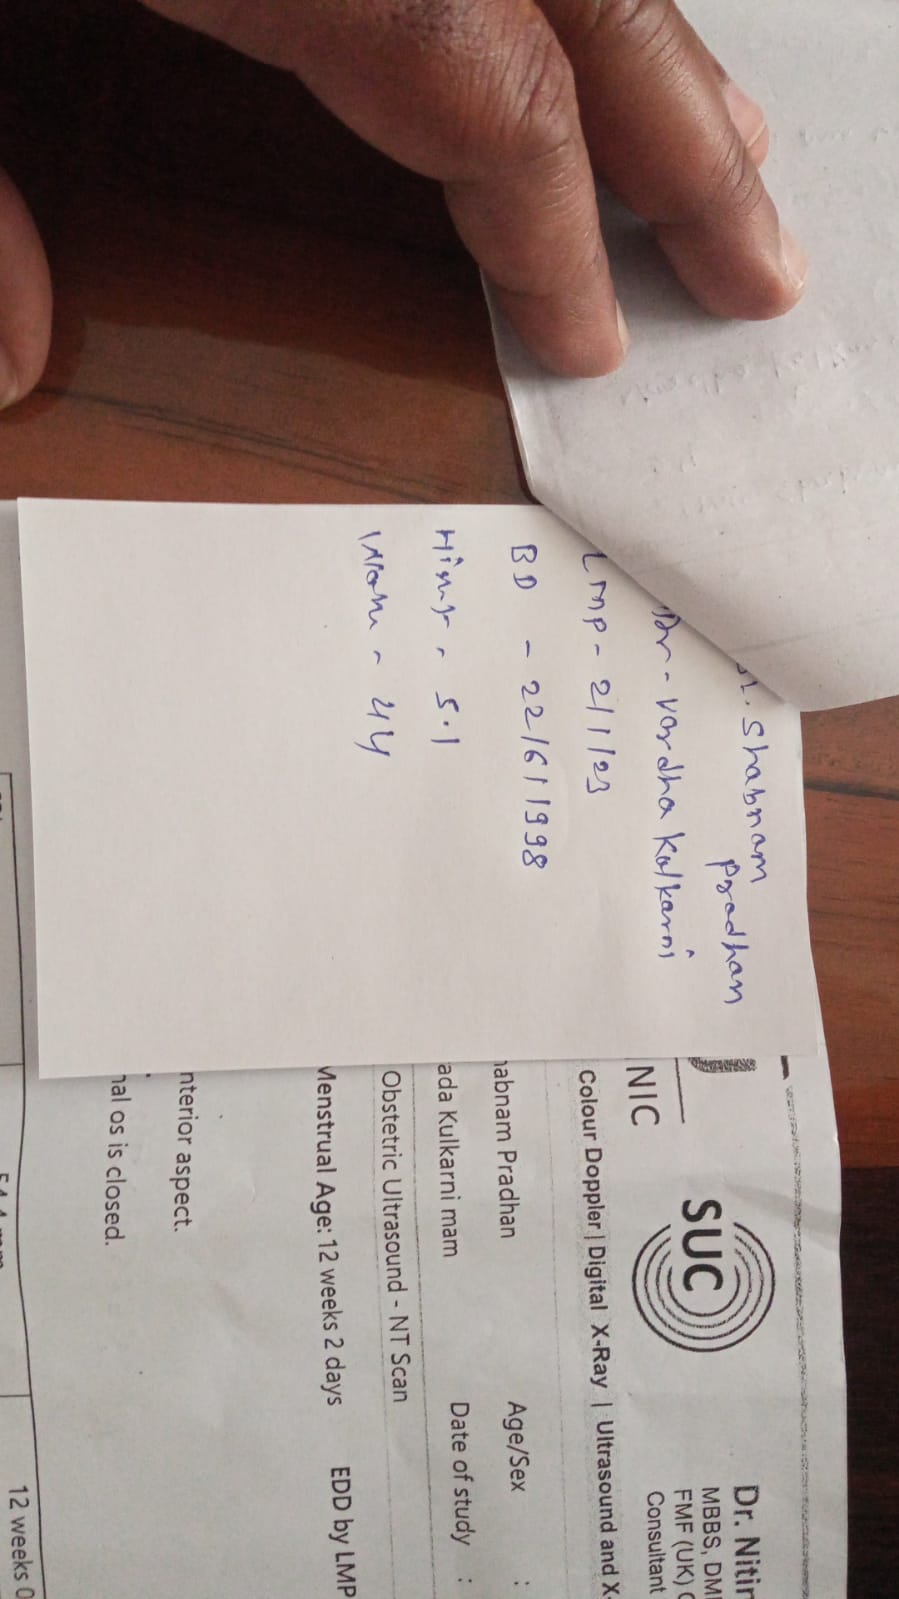 Shabnam
Pradhan
Dr - vardha kalkarni
LMP - 2/1/23
BD - 22/6/1998
5.1
44
NIC
SUC
Dr. Nitin
MBBS, DM
FMF (UK) C
Consultant
Colour Doppler | Digital X-Ray | Ultrasound and X-
habnam Pradhan Age/Sex :
ada Kulkarni mam Date of study :
Obstetric Ultrasound - NT Scan
Menstrual Age: 12 weeks 2 days EDD by LMP
nterior aspect.
nal os is closed.
12 weeks 0